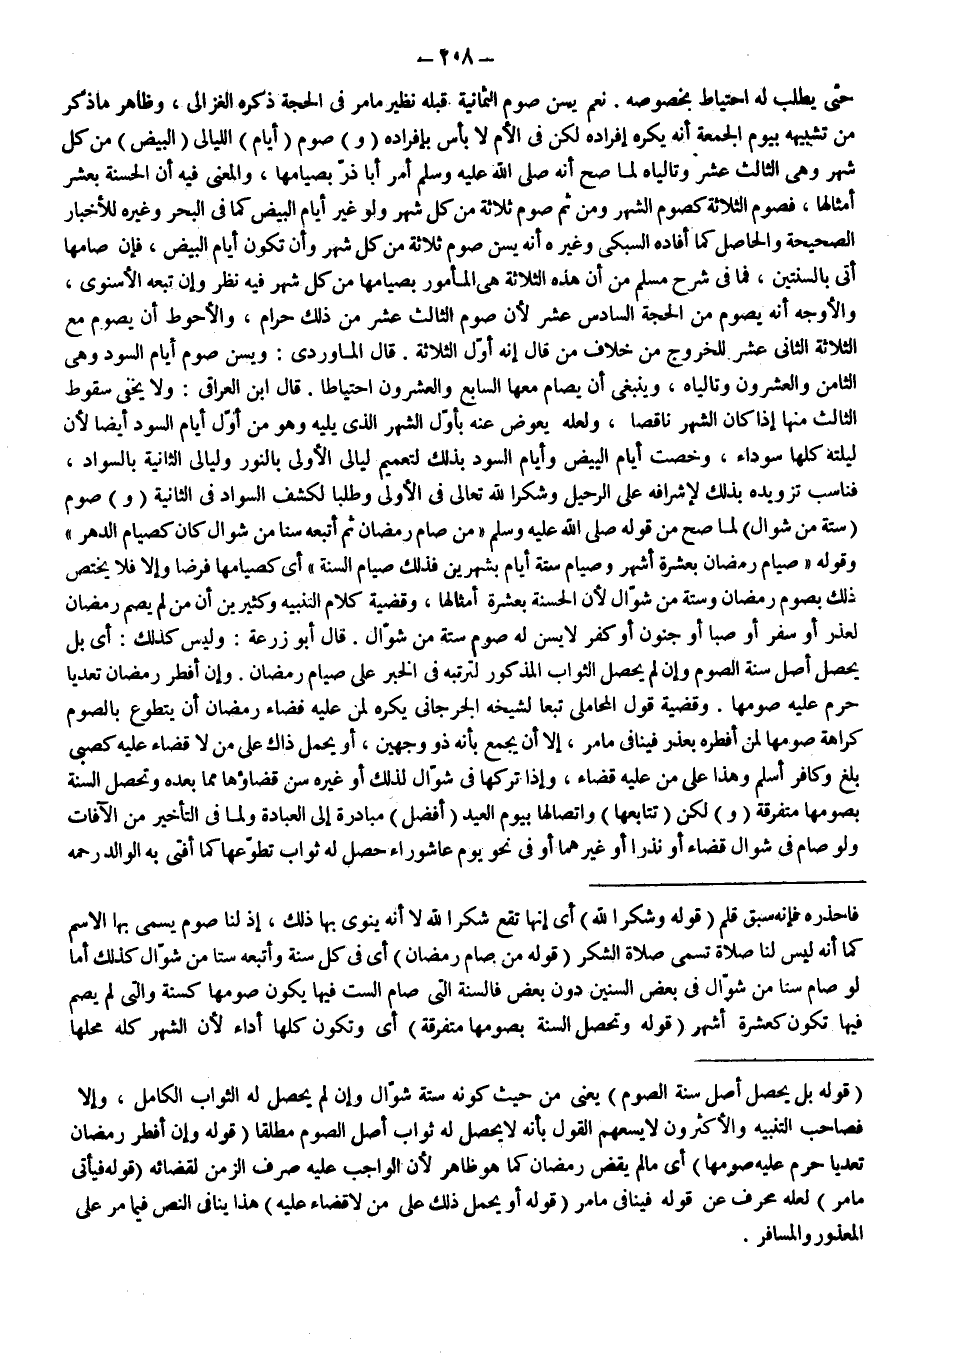 – ٢٠٨ –
حتى يطلب له احتياط بخصوصه . نعم يسن صوم الثمانية قبله نظير مامر فى الحجة ذكره الغزالى ، وظاهر ماذكر
من تشبيهه بيوم الجمعة أنه يكره إفراده لكن فى الأم لا بأس بإفراده ( و ) صوم ( أيام ) الليالى ( البيض ) من كل
شهر وهى الثالث عشر وتالياه لما صح أنه صلى الله عليه وسلم أمر أبا ذرّ بصيامها ، والمعنى فيه أن الحسنة بعشر
أمثالها ، فصوم الثلاثة كصوم الشهر ومن ثم صوم ثلاثة من كل شهر ولو غير أيام البيض كما فى البحر وغيره للأخبار
الصحيحة والحاصل كما أفاده السبكى وغيره أنه يسن صوم ثلاثة من كل شهر وأن تكون أيام البيض ، فإن صامها
أتى بالسنتين ، فما فى شرح مسلم من أن هذه الثلاثة هى المأمور بصيامها من كل شهر فيه نظر وإن تبعه الأسنوى ،
والأوجه أنه يصوم من الحجة السادس عشر لأن صوم الثالث عشر من ذلك حرام ، والأحوط أن يصوم مع
الثلاثة الثانى عشر للخروج من خلاف من قال إنه أوّل الثلاثة . قال الماوردى : ويسن صوم أيام السود وهى
الثامن والعشرون وتالياه ، وينبغى أن يصام معها السابع والعشرون احتياطا . قال ابن العراقى : ولا يخفى سقوط
الثالث منها إذا كان الشهر ناقصا ، ولعله يعوض عنه بأوّل الشهر الذى يليه وهو من أوّل أيام السود أيضا لأن
ليلته كلها سوداء ، وخصت أيام البيض وأيام السود بذلك لتعميم ليالى الأولى بالنور وليالى الثانية بالسواد ،
فناسب تزويده بذلك لإشرافه على الرحيل وشكرا لله تعالى فى الأولى وطلبا لكشف السواد فى الثانية ( و ) صوم
( ستة من شوال ) لما صح من قوله صلى الله عليه وسلم « من صام رمضان ثم أتبعه ستا من شوال كان كصيام الدهر »
وقوله « صيام رمضان بعشرة أشهر وصيام ستة أيام بشهرين فذلك صيام السنة » أى كصيامها فرضا وإلا فلا يختص
ذلك بصوم رمضان وستة من شوّال لأن الحسنة بعشرة أمثالها ، وقضية كلام التنبيه وكثيرين أن من لم يصم رمضان
لعذر أو سفر أو صبا أو جنون أو كفر لايسن له صوم ستة من شوّال . قال أبو زرعة : وليس كذلك : أى بل
يحصل أصل سنة الصوم وإن لم يحصل الثواب المذكور لترتبه فى الخبر على صيام رمضان . وإن أفطر رمضان تعديا
حرم عليه صومها . وقضية قول المحاملى تبعا لشيخه الجرجانى يكره لمن عليه قضاء رمضان أن يتطوع بالصوم
كراهة صومها لمن أفطره بعذر فينافى مامر ، إلا أن يجمع بأنه ذو وجهين ، أو يحمل ذاك على من لا قضاء عليه كصبى
بلغ وكافر أسلم وهذا على من عليه قضاء ، وإذا تركها فى شوّال لذلك أو غيره سن قضاؤها مما بعده وتحصل السنة
بصومها متفرقة ( و ) لكن ( تتابعها ) واتصالها بيوم العيد ( أفضل ) مبادرة إلى العبادة ولما فى التأخير من الآفات
ولو صام فى شوال قضاء أو نذرا أو غيرهما أو فى نحو يوم عاشوراء حصل له ثواب تطوّعها كما أفتى به الوالد رحمه
فاحذره فإنه سبق قلم ( قوله وشكرا لله ) أى إنها تقع شكرا لله لا أنه ينوى بها ذلك ، إذ لنا صوم يسمى بها الاسم
كما أنه ليس لنا صلاة تسمى صلاة الشكر ( قوله من صام رمضان ) أى فى كل سنة وأتبعه ستا من شوّال كذلك أما
لو صام ستا من شوّال فى بعض السنين دون بعض فالسنة التى صام الست فيها يكون صومها كسنة والتى لم يصم
فيها تكون كعشرة أشهر ( قوله وتحصل السنة بصومها متفرقة ) أى وتكون كلها أداء لأن الشهر كله محلها
( قوله بل يحصل أصل سنة الصوم ) يعنى من حيث كونه ستة شوّال وإن لم يحصل له الثواب الكامل ، وإلا
فصاحب التنبيه والأكثرون لايسعهم القول بأنه لايحصل له ثواب أصل الصوم مطلقا ( قوله وإن أفطر رمضان
تعديا حرم عليه صومها ) أى مالم يقض رمضان كما هو ظاهر لأن الواجب عليه صرف الزمن لقضائه ( قوله فيأتى
مامر ) لعله محرف عن قوله فينافى مامر ( قوله أو يحمل ذلك على من لاقضاء عليه ) هذا ينافى النص فيما مر على
المعذور والمسافر .